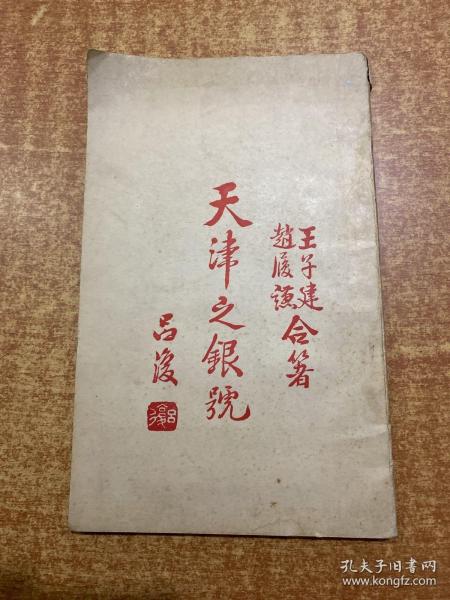 王子建
趙履謙
合箸
天津之銀號
呂復
呂復
孔夫子旧书网
www.kongfz.com